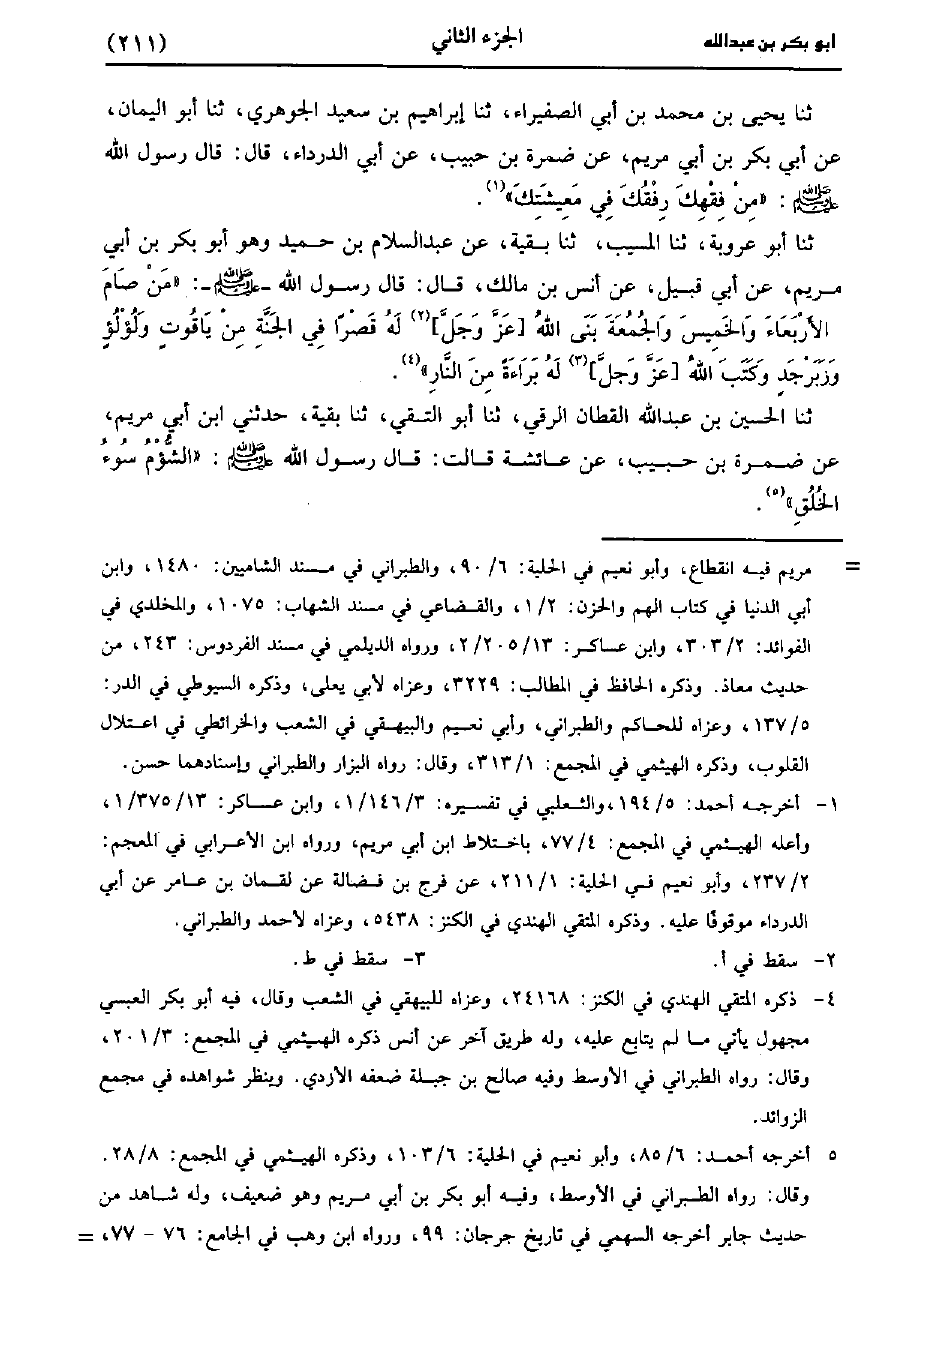 ابو بكر بن عبدالله
الجزء الثاني
(٢١١)
ثنا يحيى بن محمد بن أبي الصفيراء، ثنا إبراهيم بن سعيد الجوهري، ثنا أبو اليمان،
عن أبي بكر بن أبي مريم، عن ضمرة بن حبيب، عن أبي الدرداء، قال: قال رسول الله
ﷺ : «مِنْ فِقْهِكَ رِفْقُكَ فِي مَعِيشَتِكَ»(١).
ثنا أبو عروبة، ثنا المسيب، ثنا بقية، عن عبدالسلام بن حميد وهو أبو بكر بن أبي
مريم، عن أبي قبيل، عن أنس بن مالك، قال: قال رسول الله -ﷺ-: «مَنْ صَامَ
الأَرْبَعَاءَ وَالخَمِيسَ وَالجُمُعَةَ بَنَى اللهُ [عَزَّ وَجَلَّ](٢) لَهُ قَصْرًا فِي الجَنَّةِ مِنْ يَاقُوتٍ وَلُؤْلُؤٍ
وَزَبَرْجَدٍ وَكَتَبَ اللهُ [عَزَّ وَجَلَّ](٣) لَهُ بَرَاءَةً مِنَ النَّارِ»(٤).
ثنا الحسين بن عبدالله القطان الرقي، ثنا أبو التقي، ثنا بقية، حدثني ابن أبي مريم،
عن ضمرة بن حبيب، عن عائشة قالت: قال رسول الله ﷺ : «الشُّؤْمُ سُوءُ
الخُلُقِ»(٥).
= مريم فيه انقطاع، وأبو نعيم في الحلية: ٦/ ٩٠، والطبراني في مسند الشاميين: ١٤٨٠، وابن
أبي الدنيا في كتاب الهم والحزن: ١/٢، والقضاعي في مسند الشهاب: ١٠٧٥، والمخلدي في
الفوائد: ٣٠٣/٢، وابن عساكر: ٢/٢٠٥/١٣، ورواه الديلمي في مسند الفردوس: ٢٤٣، من
حديث معاذ. وذكره الحافظ في المطالب: ٣٢٢٩، وعزاه لأبي يعلى، وذكره السيوطي في الدر:
١٣٧/٥، وعزاه للحاكم والطبراني، وأبي نعيم والبيهقي في الشعب والخرائطي في اعتلال
القلوب، وذكره الهيثمي في المجمع: ٣١٣/١، وقال: رواه البزار والطبراني وإسنادهما حسن.
١- أخرجه أحمد: ١٩٤/٥،والثعلبي في تفسيره: ١/١٤٦/٣، وابن عساكر: ١/٣٧٥/١٣،
وأعله الهيثمي في المجمع: ٧٧/٤، باختلاط ابن أبي مريم، ورواه ابن الأعرابي في المعجم:
٢٣٧/٢، وأبو نعيم في الحلية: ٢١١/١، عن فرج بن فضالة عن لقمان بن عامر عن أبي
الدرداء موقوفًا عليه. وذكره المتقي الهندي في الكنز: ٥٤٣٨، وعزاه لأحمد والطبراني.
٢- سقط في أ. ٣- سقط في ط.
٤- ذكره المتقي الهندي في الكنز: ٢٤١٦٨، وعزاه للبيهقي في الشعب وقال، فيه أبو بكر العبسي
مجهول يأتي ما لم يتابع عليه، وله طريق آخر عن أنس ذكره الهيثمي في المجمع: ٢٠١/٣،
وقال: رواه الطبراني في الأوسط وفيه صالح بن جبلة ضعفه الأزدي. وينظر شواهده في مجمع
الزوائد.
٥ أخرجه أحمد: ٨٥/٦، وأبو نعيم في الحلية: ١٠٣/٦، وذكره الهيثمي في المجمع: ٢٨/٨.
وقال: رواه الطبراني في الأوسط، وفيه أبو بكر بن أبي مريم وهو ضعيف، وله شاهد من
حديث جابر أخرجه السهمي في تاريخ جرجان: ٩٩، ورواه ابن وهب في الجامع: ٧٦ - ٧٧، =